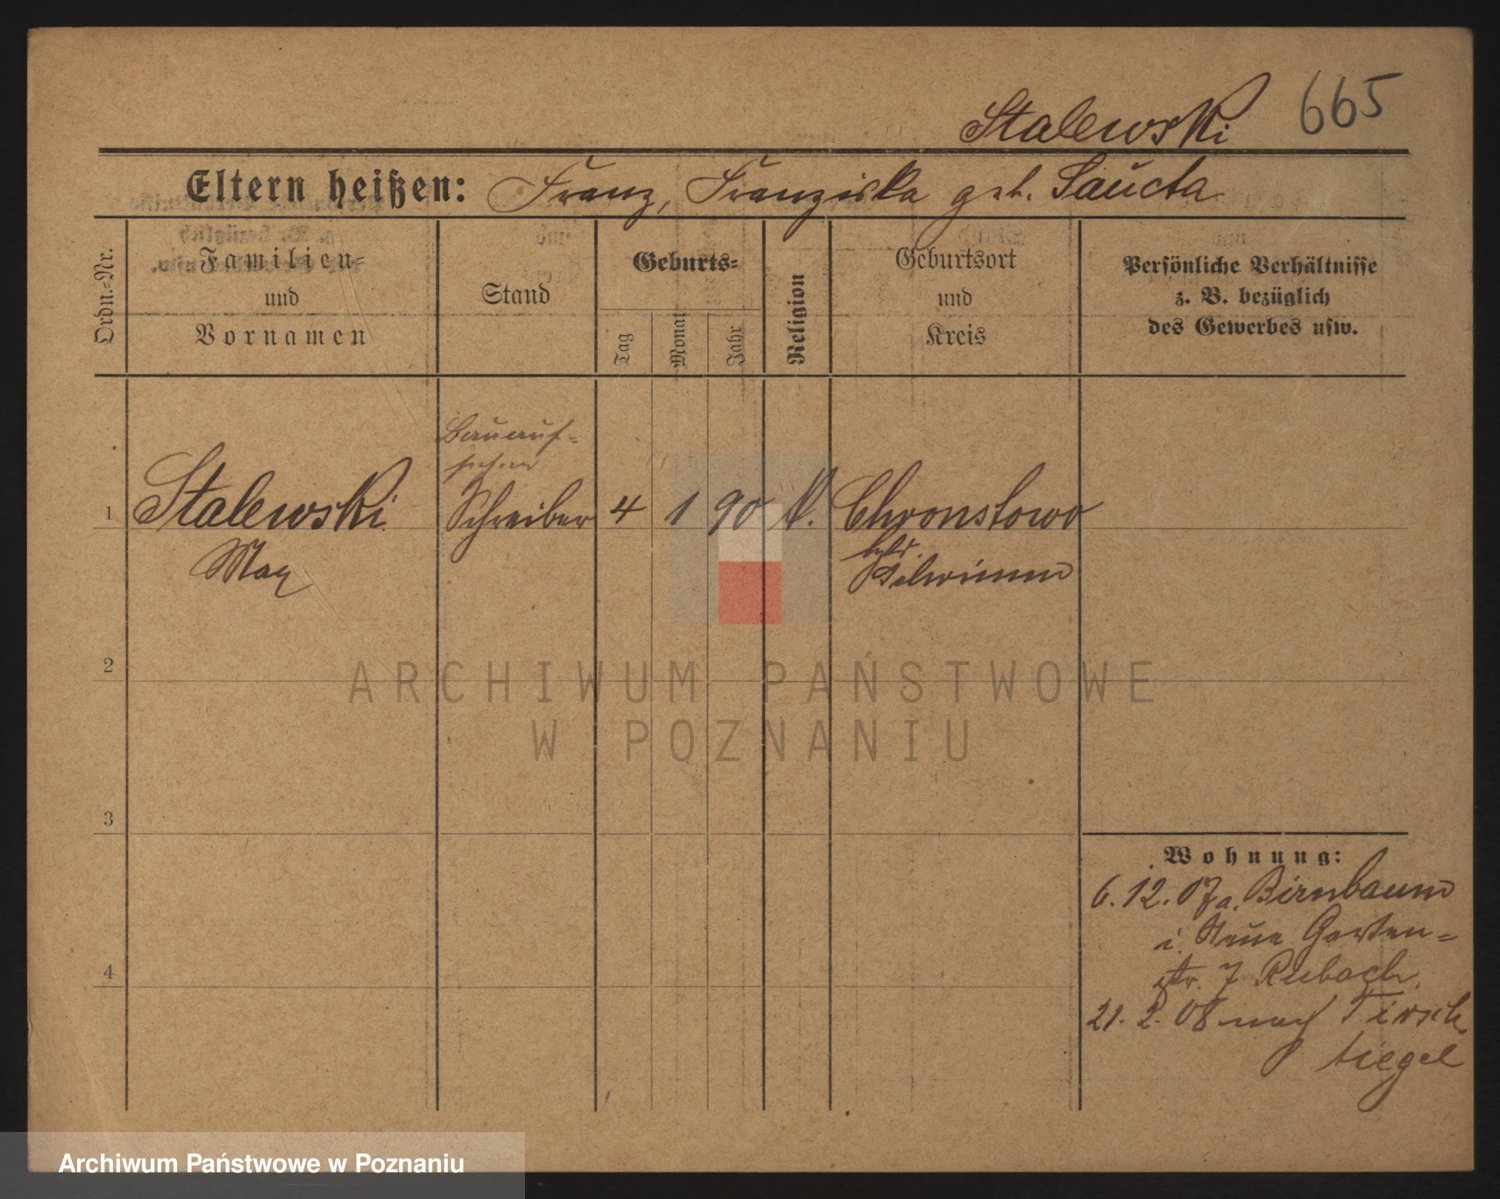 Stalewski 665
Eltern heißen: Franz, Franziska geb. Saucta
Ordn.-Nr.
Familien-
und
Vornamen
Stand
Geburts-
Tag
Monat
Jahr
Religion
Geburtsort
und
Kreis
Persönliche Verhältnisse
z. B. bezüglich
des Gewerbes usw.
Bauauf-
seher
1 Stalewski Schreiber 4 1 90 k. Chronstowo
Max
2
3
4
Wohnung:
6.12.07 a. Birnbaum
i. Neue Garten-
str. 7 Rubach.
21.2.08 nach Tirsch
tiegel
ARCHIWUM PAŃSTWOWE
W POZNANIU
Archiwum Państwowe w Poznaniu